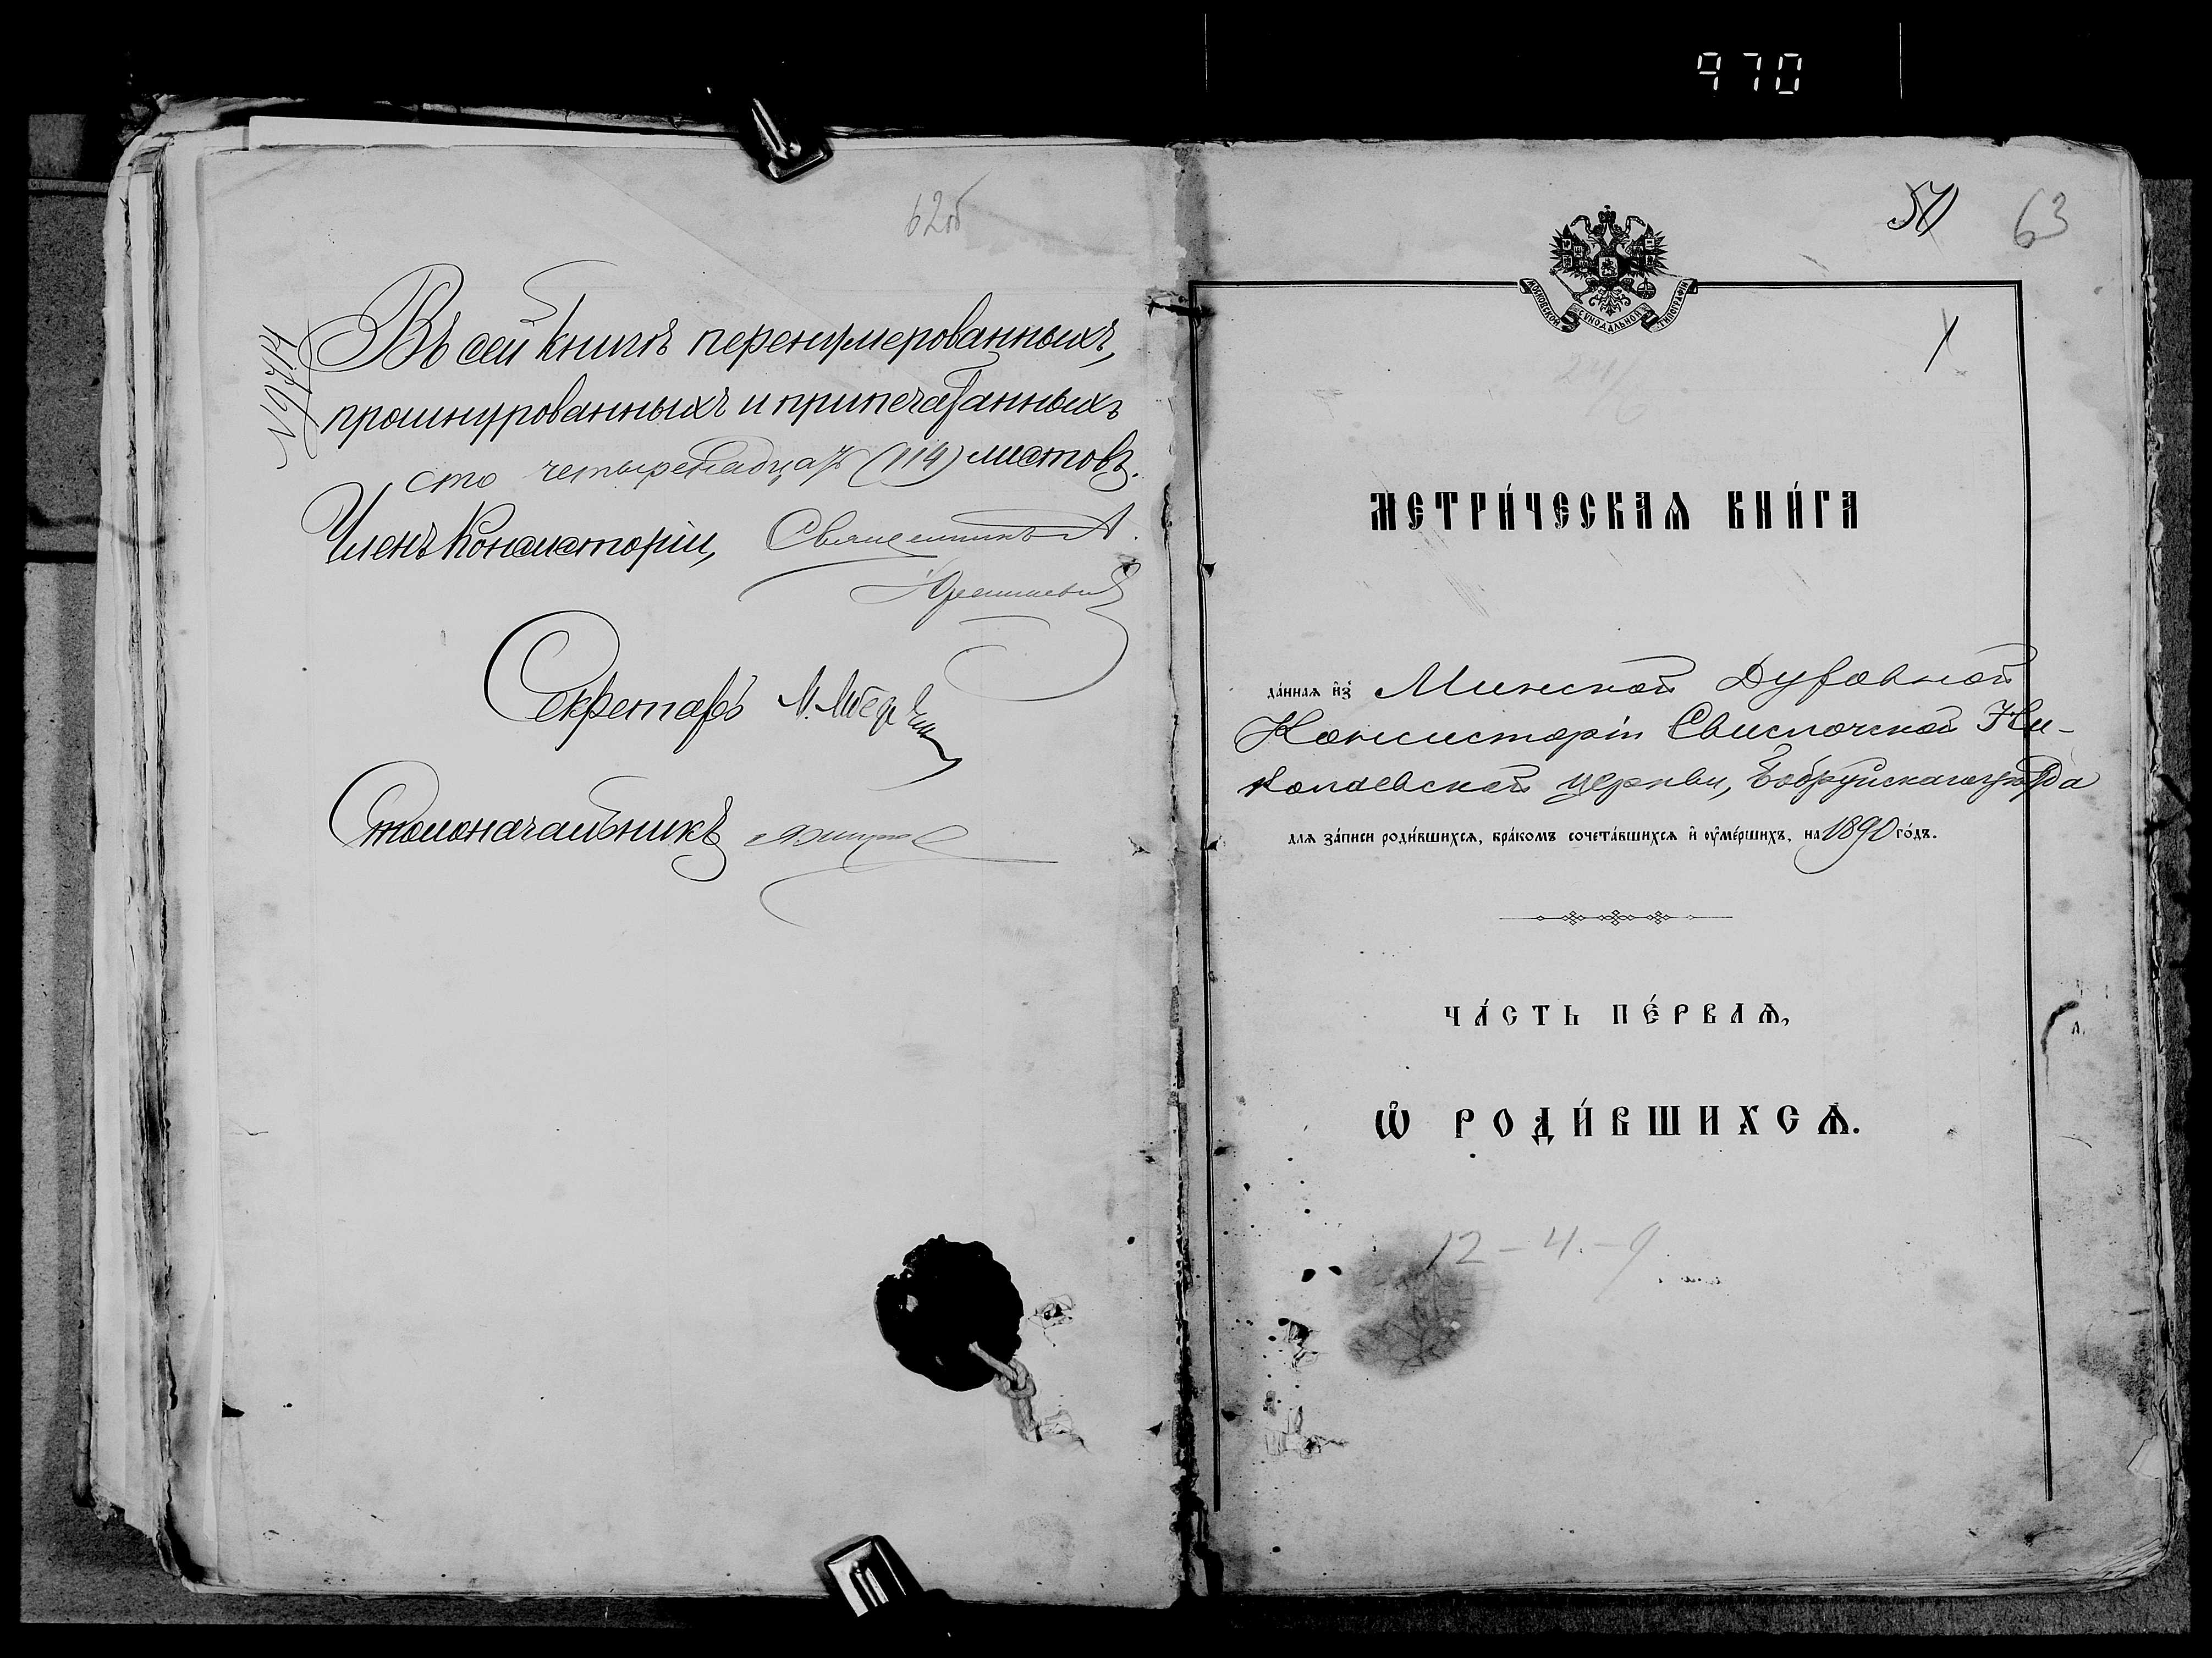 970
62об
№ 9774
Въ сей книгѣ перенумерованныхъ,
прошнурованныхъ и припечатанныхъ
сто четырнадцать (114) листовъ.
Членъ Консисторіи, Священникъ А.
Секретарь М.
Столоначальникъ
63
МОСКОВСКОЙ СѴНОДАЛЬНОЙ ТИПОГРАФІИ
МЕТРИ́ЧЕСКАѦ КНИ́ГА
да́ннаѧ и҆зъ Минской Духовной
Консисторіи Свислочской Ни-
колаевской церкви, Бобруйскаго уѣзда
длѧ за́писи роди́вшихсѧ, бра́комъ сочета́вшихсѧ и҆ ᲂу҆ме́ршихъ, на 1890 го́дъ.
ЧА́СТЬ ПЕ́РВАѦ,
Ѡ҆ РОДИ́ВШИХСѦ.
12-4-9